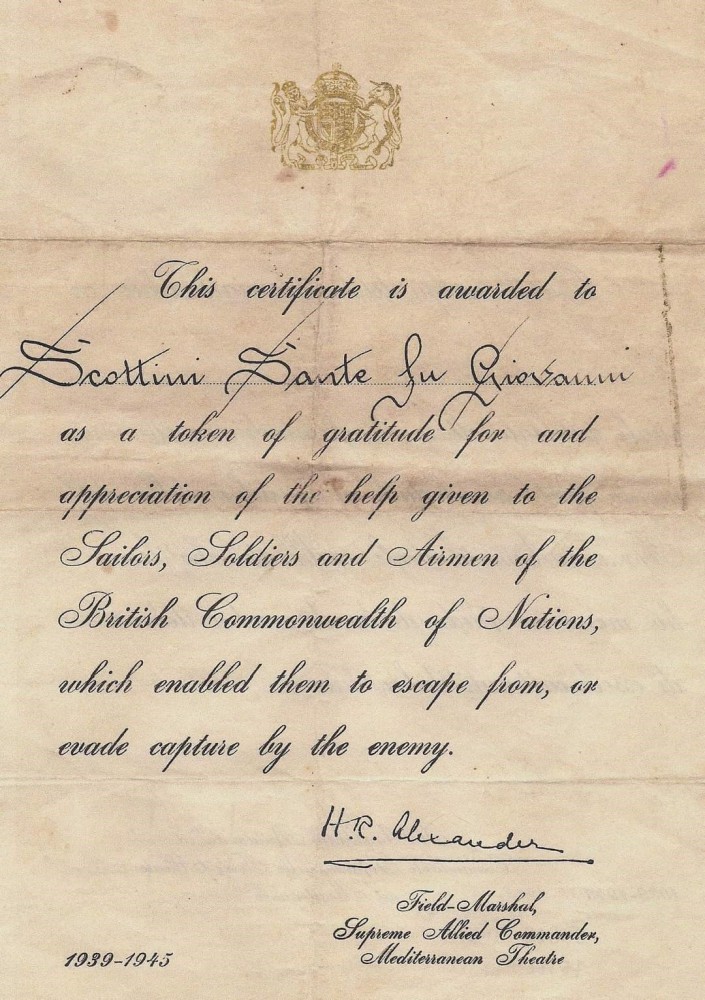 This certificate is awarded to
Scottini Sante fu Giovanni
as a token of gratitude for and
appreciation of the help given to the
Sailors, Soldiers and Airmen of the
British Commonwealth of Nations,
which enabled them to escape from, or
evade capture by the enemy.
H.R. Alexander
Field-Marshal,
Supreme Allied Commander,
Mediterranean Theatre
1939-1945